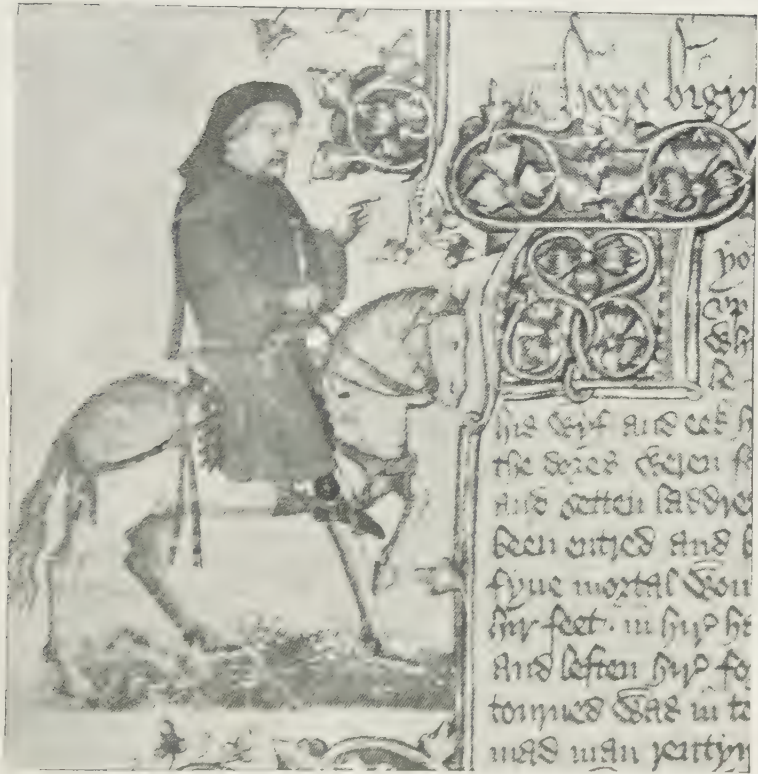 heere bigyn
yo
vp
Wh
his wyf and eek h
the dores weren fa
and setten laddre
been entred and b
fyue mortal wou
hir feet · in hir ha
and leften hir fo
tourned was in to
mad man rentyn